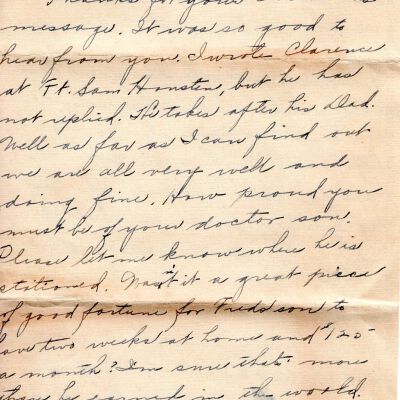 Thanks for your
message. It was so good to
hear from you. I wrote Clarence
at Ft. Sam Housten, but he has
not replied. He takes after his Dad.
Well as far as I can find out
we are all very well and
doing fine. How proud you
must be of your doctor son.
Please let me know where he is
stitioned. Wasn't it a great piece
of good fortune for Freds son to
have two weeks at home and $125
a month? I'm sure thats more
than he earned in the world.